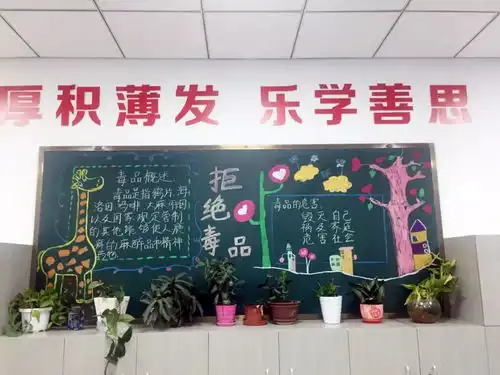 厚积薄发 乐学善思
毒品概述
毒品是指鸦片,海
洛因,吗啡,大麻,可卡因
以及国家规定管制
的其他能够使人形
瘾的麻醉品和精神
药物.
拒绝毒品
毒品的危害:
毁灭自己
祸及家庭
危害社会